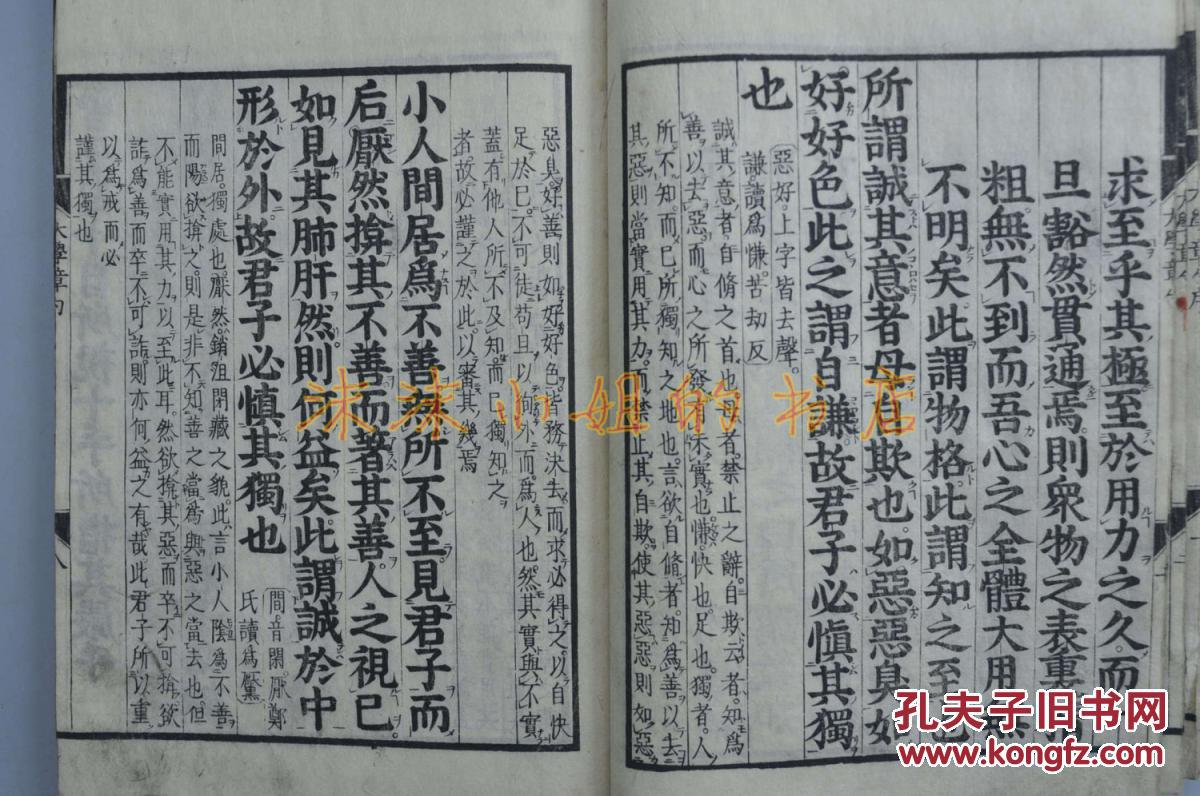 求至乎其極至於用力之久而
旦豁然貫通焉則衆物之表裏
粗無不到而吾心之全體大用無
不明矣此謂物格此謂知之至也
所謂誠其意者毋自欺也如惡惡臭如
好好色此之謂自謙故君子必慎其獨
也
惡好上字皆去聲
謙讀爲慊苦劫反
誠其意者自脩之首也毋者禁止之辭自欺云者知爲
善以去惡而心之所發有未實也慊快也足也獨者人
所不知而已所獨知之地也言欲自脩者知爲善以去
其惡則當實用其力而禁止其自欺使其惡惡則如惡
惡臭好善則如好好色皆務決去而求必得之以自快
足於已不可徒苟且以徇外而爲人也然其實與不實
蓋有他人所不及知而已獨知之
者故必謹之於此以審其幾焉
小人間居爲不善無所不至見君子而
后厭然揜其不善而著其善人之視已
如見其肺肝然則何益矣此謂誠於中
形於外故君子必慎其獨也
間音閑厭鄭
氏讀爲黶
間居獨處也厭然銷沮閉藏之貌此言小人陰爲不善
而陽欲揜之則是非不知善之當爲與惡之當去也但
不能實用其力以至此耳然欲揜其惡而卒不可揜欲
詐爲善而卒不可詐則亦何益之有哉此君子所以重
以爲戒而必
謹其獨也
大學章句
八
沐沐小姐的书店
孔夫子旧书网
www.kongfz.com